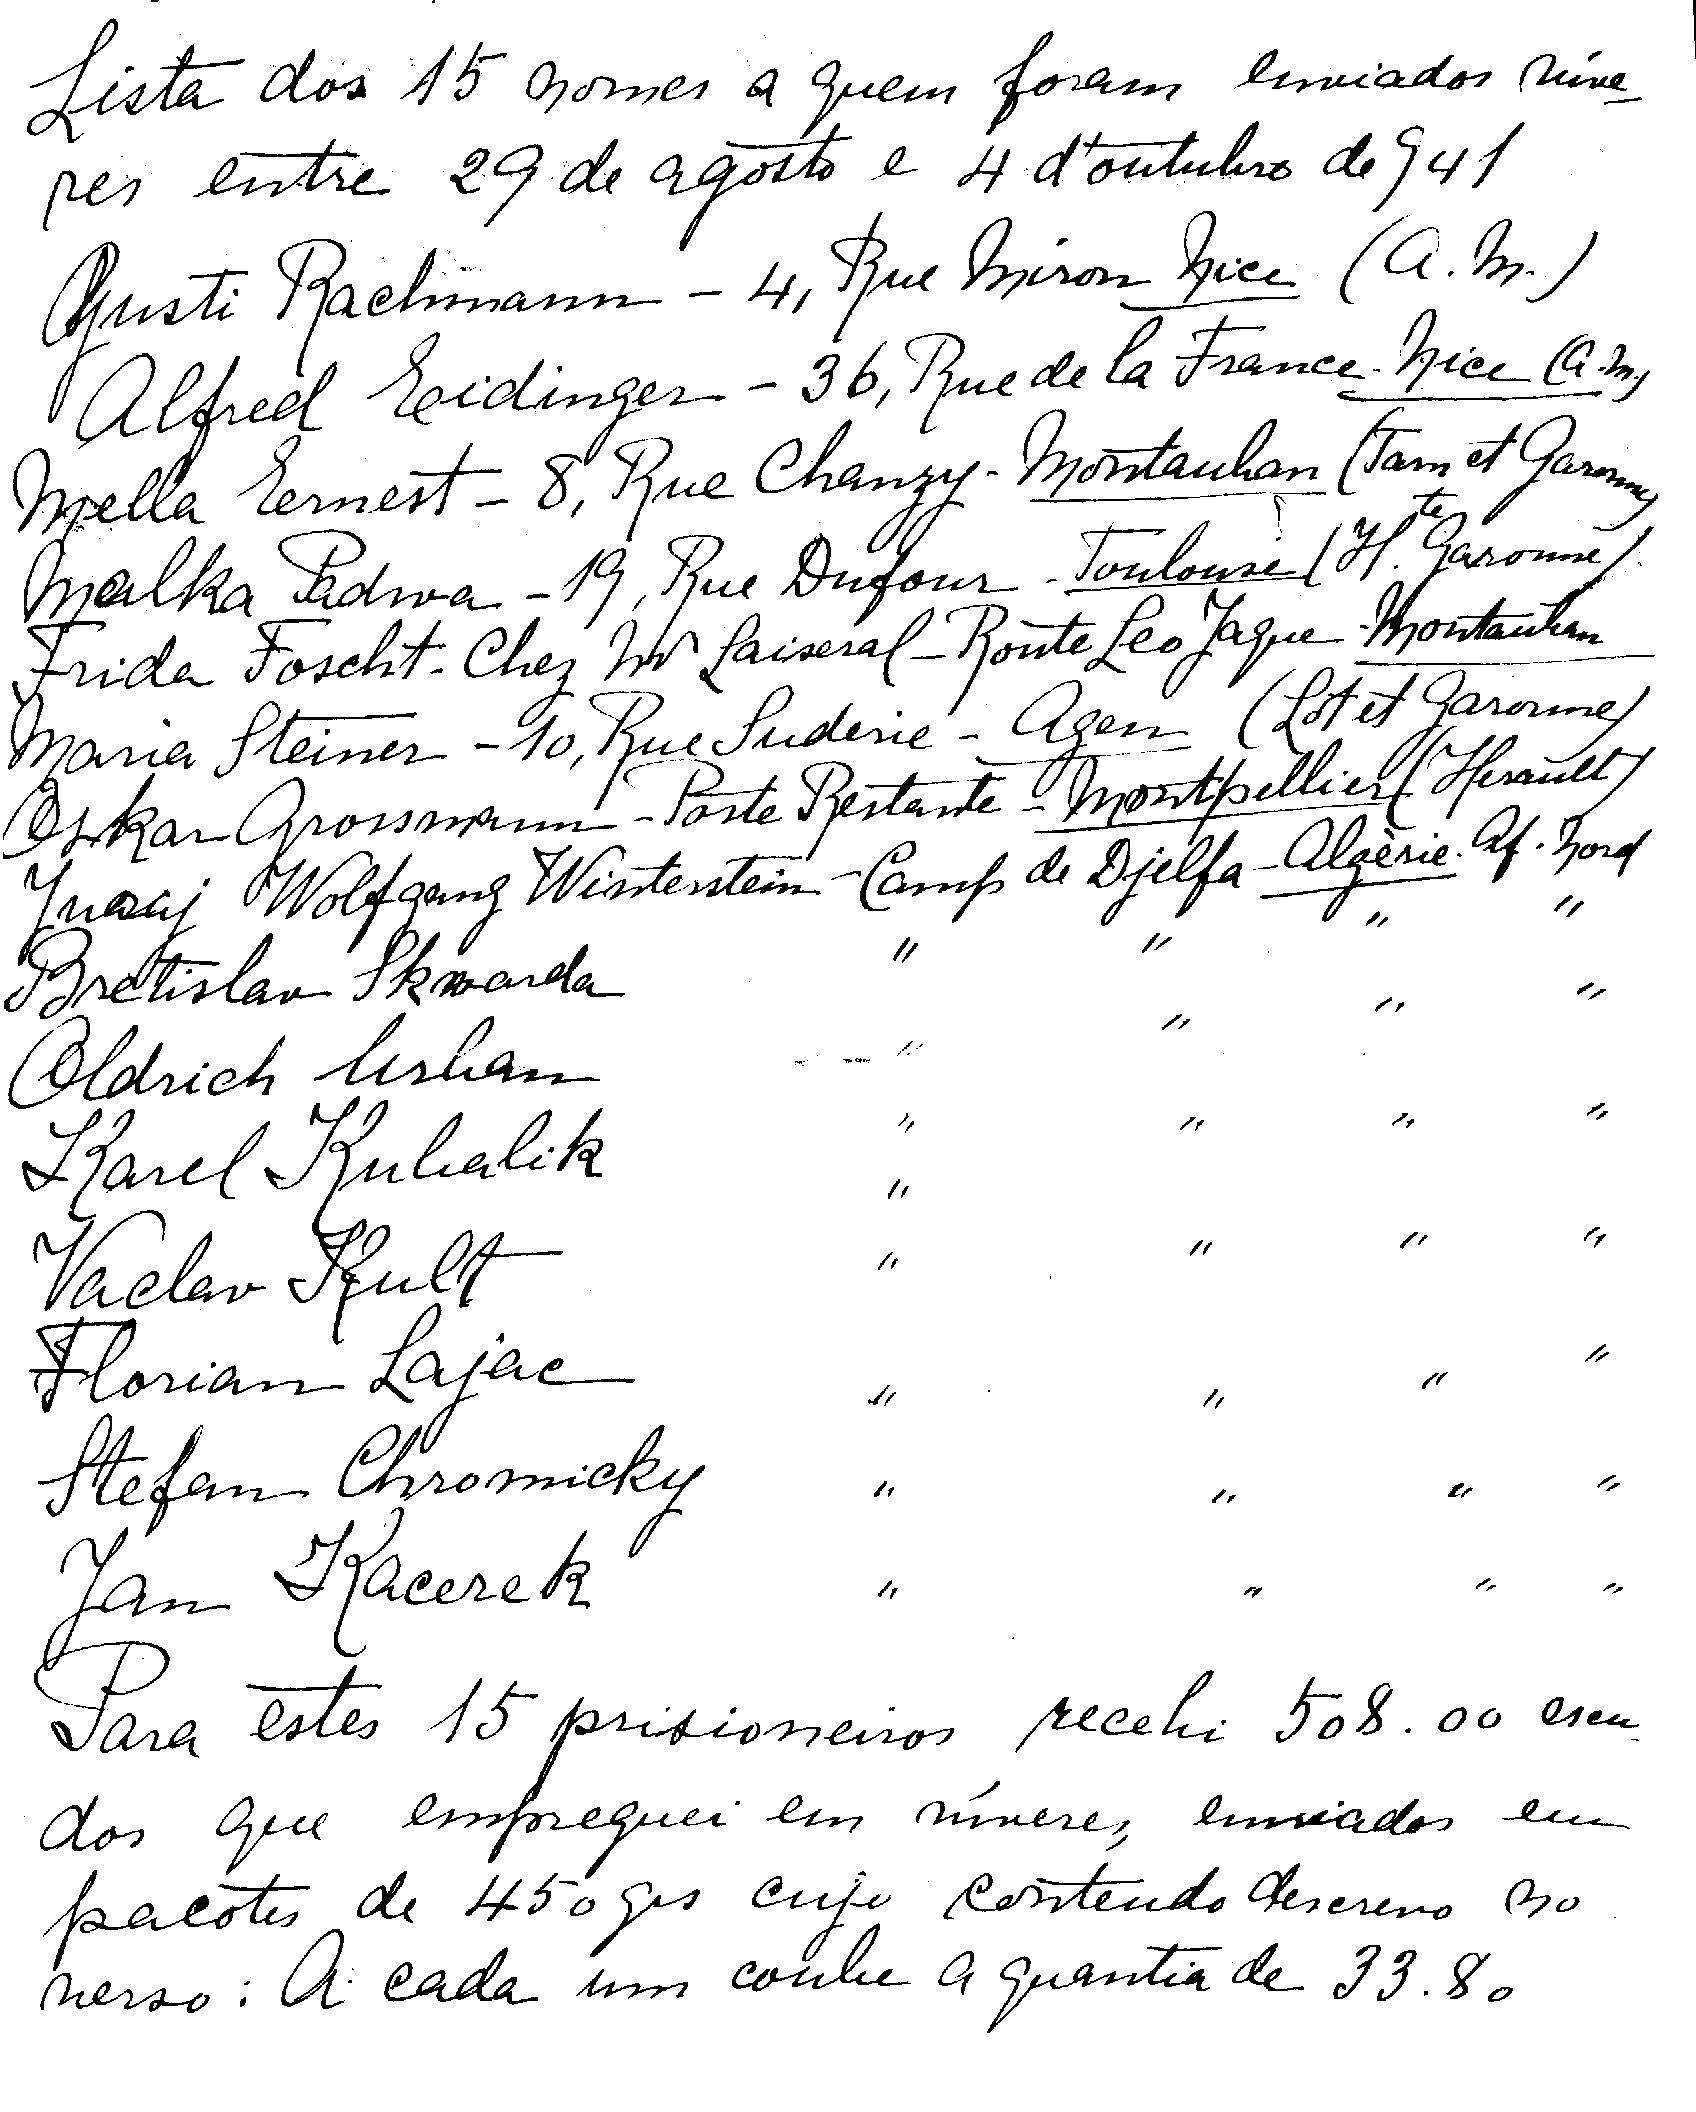 Lista dos 15 nomes a quem foram enviados víve-
res entre 29 de agosto e 4 d'outubro de 941
Gusti Rachmann - 4, Rue Miron Nice (A. M.)
Alfred Eidinger - 36, Rue de la France - Nice (A. M.)
Mella Ernest - 8, Rue Chanzy - Montauban (Tarn et Garonne)
Malka Padwa - 19, Rue Dufour - Toulouse (H.te Garonne)
Frida Foscht - Chez Mr Laiseral - Route Leo Jaque - Montauban
Maria Steiner - 10, Rue Suderie - Agen (Lot et Garonne)
Oskar Grossmann - Poste Restante - Montpellier (Herault)
Juraj Wolfgang Winterstein - Camp de Djelfa - Algèrie. Af. Nord
Bretislav Skwarda " " " "
Oldrich Urban " " " "
Karel Kubalik " " " "
Vaclav Kult " " " "
Florian Lajac " " " "
Stefan Chromicky " " " "
Jan Kacerek " " " "
Para estes 15 prisioneiros recebi 508.00 escu-
dos que empreguei em víveres, enviados em
pacotes de 450 grs cujo contendo descrevo no
verso: A cada um coube a quantia de 33.80